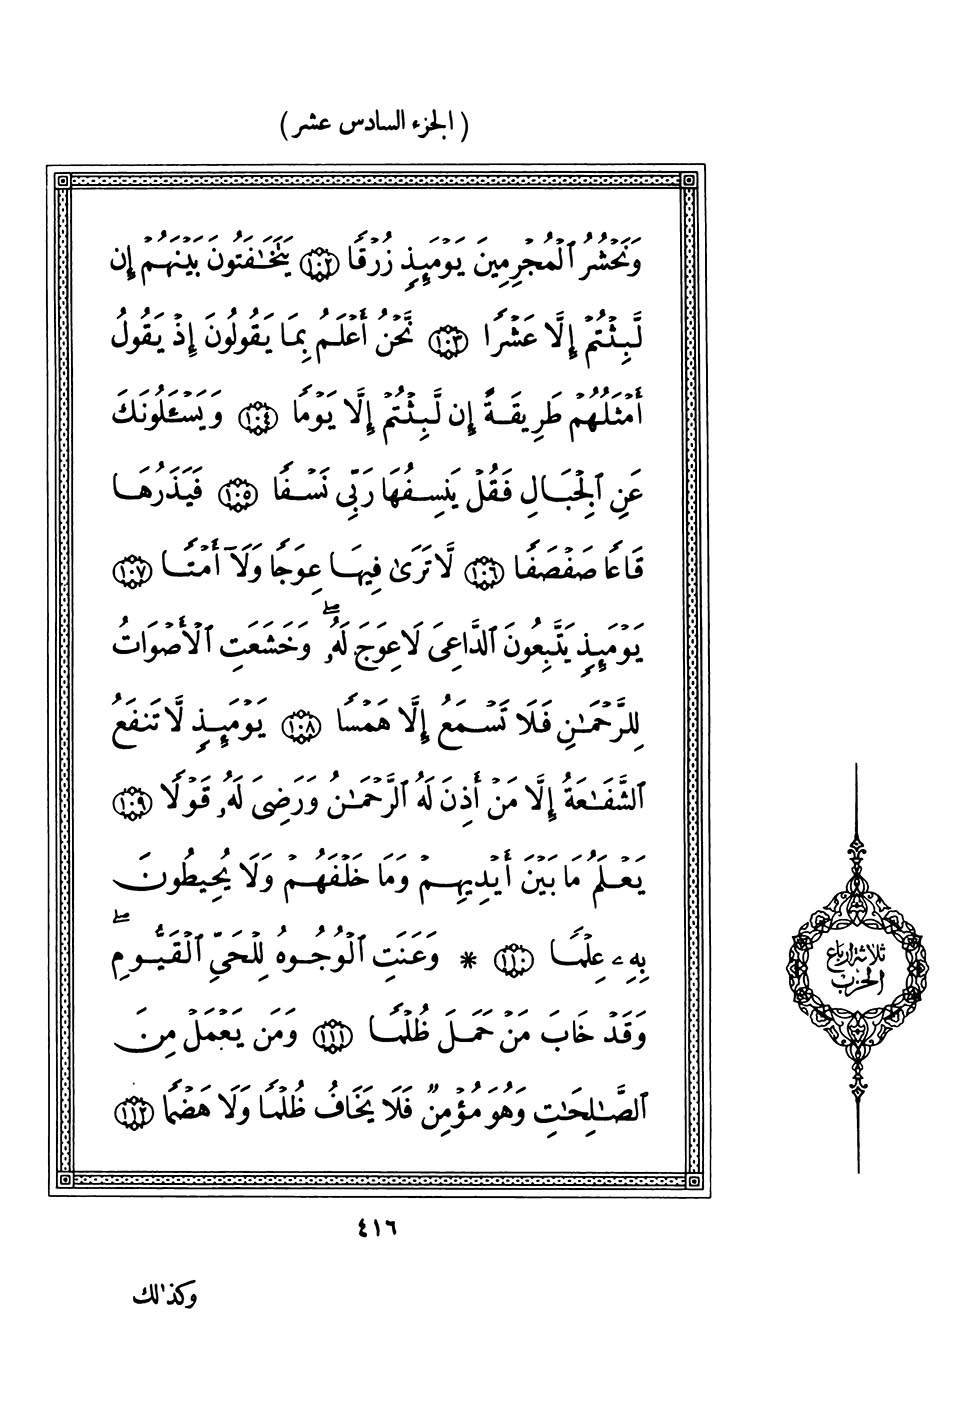 (الجزء السادس عشر)
وَنَحْشُرُ ٱلْمُجْرِمِينَ يَوْمَئِذٍ زُرْقًا ١٠٢ يَتَخَٰفَتُونَ بَيْنَهُمْ إِن
لَّبِثْتُمْ إِلَّا عَشْرًا ١٠٣ نَّحْنُ أَعْلَمُ بِمَا يَقُولُونَ إِذْ يَقُولُ
أَمْثَلُهُمْ طَرِيقَةً إِن لَّبِثْتُمْ إِلَّا يَوْمًا ١٠٤ وَيَسْـَٔلُونَكَ
عَنِ ٱلْجِبَالِ فَقُلْ يَنسِفُهَا رَبِّى نَسْفًا ١٠٥ فَيَذَرُهَا
قَاعًا صَفْصَفًا ١٠٦ لَّا تَرَىٰ فِيهَا عِوَجًا وَلَآ أَمْتًا ١٠٧
يَوْمَئِذٍ يَتَّبِعُونَ ٱلدَّاعِىَ لَا عِوَجَ لَهُۥ ۖ وَخَشَعَتِ ٱلْأَصْوَاتُ
لِلرَّحْمَٰنِ فَلَا تَسْمَعُ إِلَّا هَمْسًا ١٠٨ يَوْمَئِذٍ لَّا تَنفَعُ
ٱلشَّفَٰعَةُ إِلَّا مَنْ أَذِنَ لَهُ ٱلرَّحْمَٰنُ وَرَضِىَ لَهُۥ قَوْلًا ١٠٩
يَعْلَمُ مَا بَيْنَ أَيْدِيهِمْ وَمَا خَلْفَهُمْ وَلَا يُحِيطُونَ
بِهِۦ عِلْمًا ١١٠ * وَعَنَتِ ٱلْوُجُوهُ لِلْحَىِّ ٱلْقَيُّومِ ۖ
وَقَدْ خَابَ مَنْ حَمَلَ ظُلْمًا ١١١ وَمَن يَعْمَلْ مِنَ
ٱلصَّٰلِحَٰتِ وَهُوَ مُؤْمِنٌ فَلَا يَخَافُ ظُلْمًا وَلَا هَضْمًا ١١٢
ثلاثة ارباع
الحزب
٤١٦
وكذٰلك